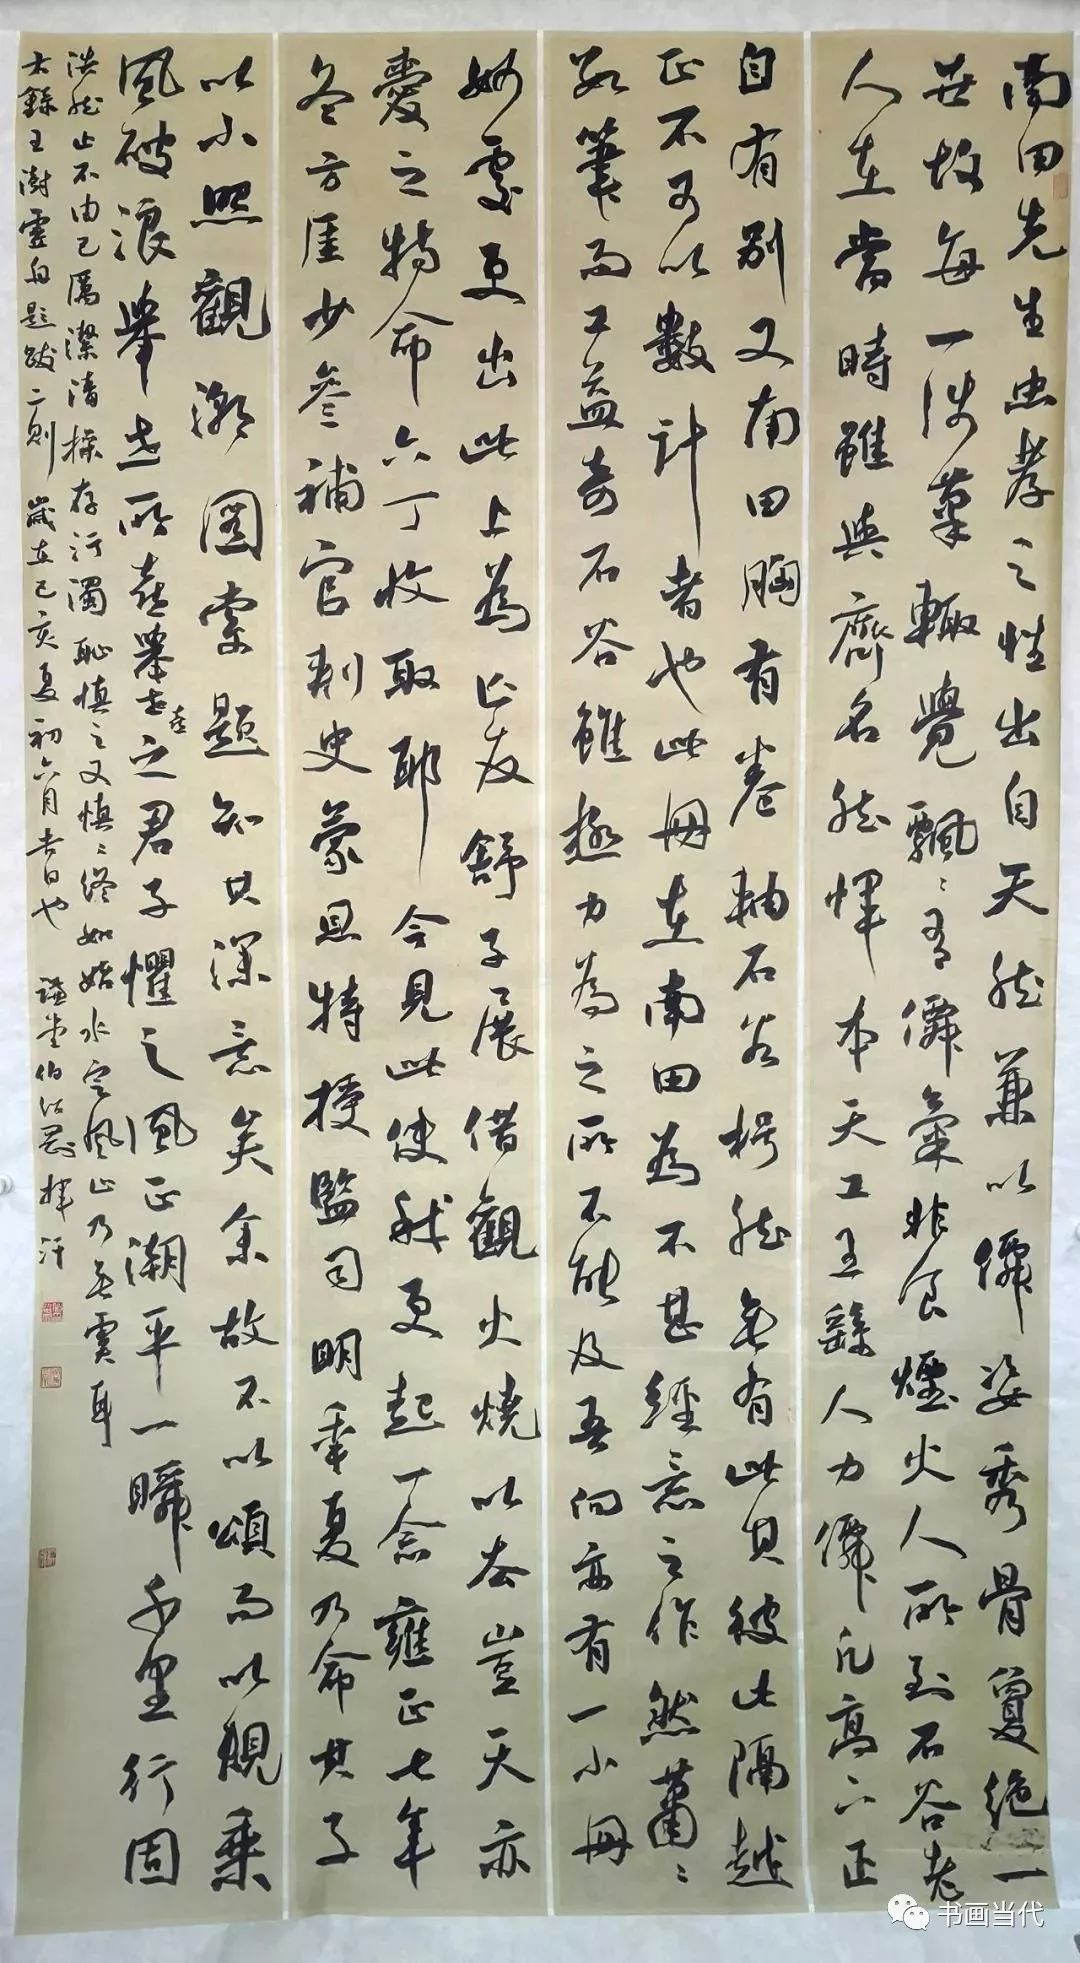 南田先生忠孝之性出自天然兼以仙姿秀骨夐绝一
世故每一涉笔辄觉飘〻有仙气非食烟火人所到石谷老
人在当时虽与齐名然恽本天工王繇人力仙凡高下正
自有别又南田胸有卷轴石谷枵然无有此其彼此隔越
正不可以数计者也此册在南田为不甚经意之作然萧〻
数笔而工益奇石谷虽极力为之所不能及吾向亦有一小册
妙处更出此上为亡友舒子展借观火烧以去岂天亦
爱之特命六丁收取耶 今见此使我更起一念雍正七年
冬方厓少参补官荆史蒙恩特授监司明年夏乃命其子
以小照观潮图索题知其深意矣余故不以颂而以规乘
风破浪举世所喜举世喜之君子惧之风正潮平一瞬千里行固
浩然止不由己厉洁清操存污浊耻慎之又慎〻终如始水定风止乃无虞耳
右录王澍虚舟题跋二则 岁在己亥夏初六月吉日也
书画当代